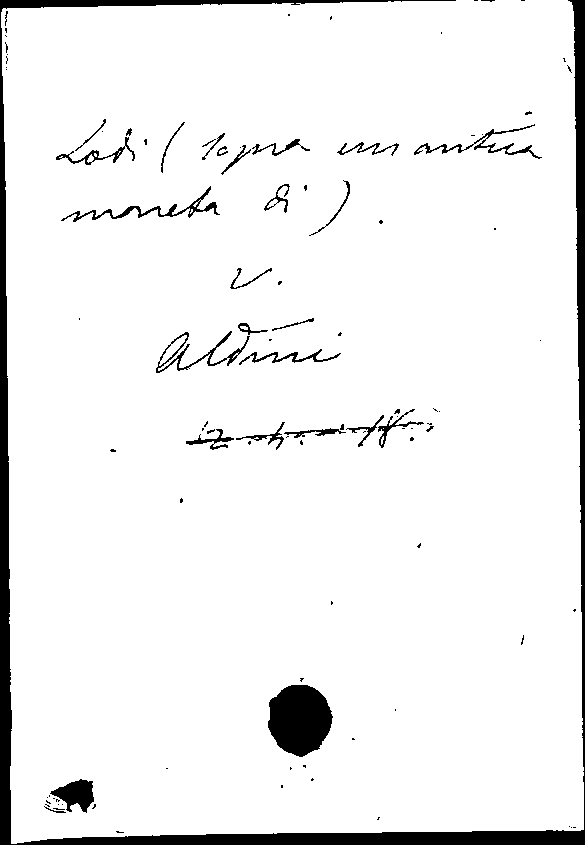 Lodi (sopra un antica
moneta di).
v.
Aldini